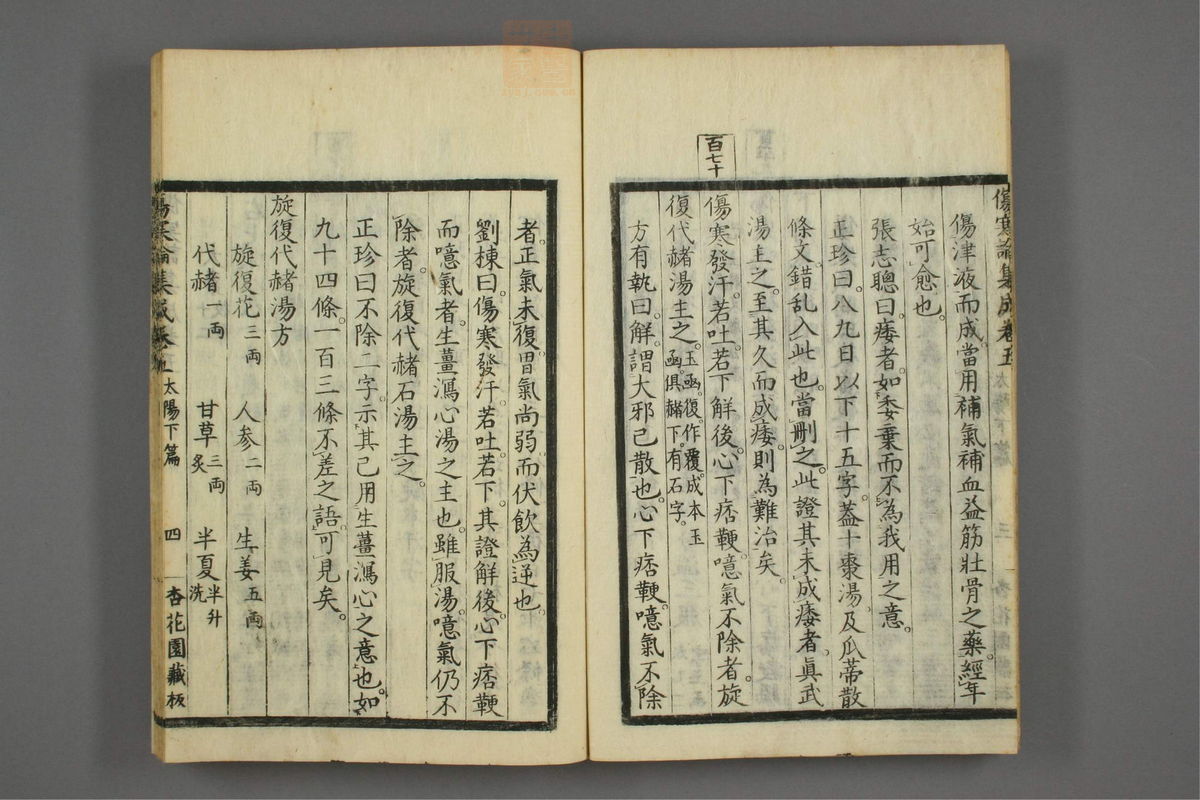 傷寒論集成卷五
傷津液而成。當用補氣補血益筋壯骨之藥。經年
始可愈也。
張志聰曰。痿者。如委棄而不為我用之意。
正珍曰。八九日以下十五字。葢十棗湯。及瓜蒂散
條文。錯乱入此也。當刪之。此證其未成痿者。眞武
湯主之。至其久而成痿。則為難治矣。
百七十
傷寒發汗。若吐若下解後。心下痞鞕。噫氣不除者。旋
復代赭湯主之。玉函。復。作覆。成本玉
函。俱赭下。有石字。
方有執曰。解。謂大邪已散也。心下痞鞕。噫氣不除
者。正氣未復。胃氣尚弱。而伏飲為逆也。
劉棟曰。傷寒發汗。若吐。若下。其證解後。心下痞鞕
而噫氣者。生薑瀉心湯之主也。雖服湯。噫氣仍不
除者。旋復代赭石湯主之。
正珍曰。不除二字。示其已用生薑瀉心之意也。如
九十四條。一百三條不差之語。可見矣。
旋復代赭湯方
旋復花三両 人參二両 生姜五両
代赭一両 甘草三両炙 半夏半升洗
傷寒論集成卷五 太陽下篇 四 杏花園藏板